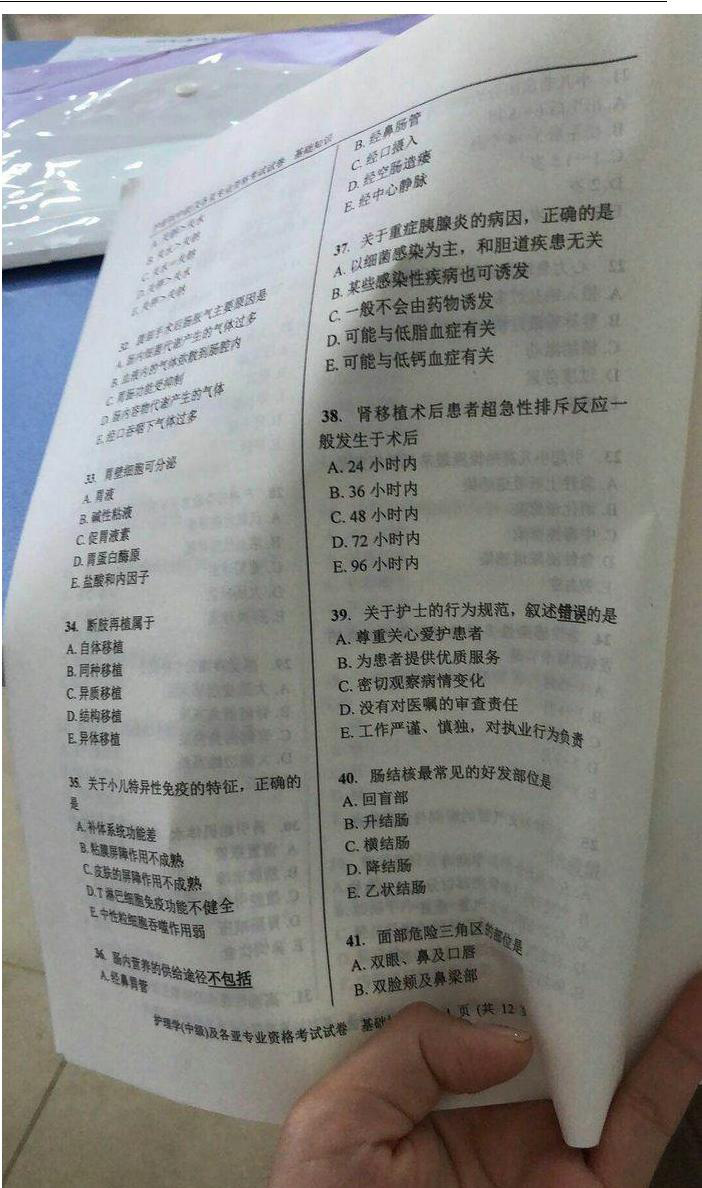 护理学(中级)及各亚专业资格考试试卷 基础知识
A.失钠>失水
B.失水>失钠
C.失水=失钠
32. 腹部手术后肠胀气主要原因是
A.肠内细菌代谢产生的气体过多
B.血液内的气体弥散到肠腔内
C.胃肠功能受抑制
D.肠内容物代谢产生的气体
E.经口吞咽下气体过多
33. 胃壁细胞可分泌
A.胃液
B.碱性粘液
C.促胃液素
D.胃蛋白酶原
E.盐酸和内因子
34. 断肢再植属于
A.自体移植
B.同种移植
C.异质移植
D.结构移植
E.异体移植
35. 关于小儿特异性免疫的特征，正确的
是
A.补体系统功能差
B.粘膜屏障作用不成熟
C.皮肤的屏障作用不成熟
D.T淋巴细胞免疫功能不健全
E.中性粒细胞吞噬作用弱
36. 肠内营养的供给途径不包括
A.经鼻胃管
B.经鼻肠管
C.经口摄入
D.经空肠造瘘
E.经中心静脉
37. 关于重症胰腺炎的病因，正确的是
A.以细菌感染为主，和胆道疾患无关
B.某些感染性疾病也可诱发
C.一般不会由药物诱发
D.可能与低脂血症有关
E.可能与低钙血症有关
38. 肾移植术后患者超急性排斥反应一
般发生于术后
A.24小时内
B.36小时内
C.48小时内
D.72小时内
E.96小时内
39. 关于护士的行为规范，叙述错误的是
A.尊重关心爱护患者
B.为患者提供优质服务
C.密切观察病情变化
D.没有对医嘱的审查责任
E.工作严谨、慎独，对执业行为负责
40. 肠结核最常见的好发部位是
A.回盲部
B.升结肠
C.横结肠
D.降结肠
E.乙状结肠
41. 面部危险三角区的部位是
A.双眼、鼻及口唇
B.双脸颊及鼻梁部
护理学(中级)及各亚专业资格考试试卷 基础 页 (共 12